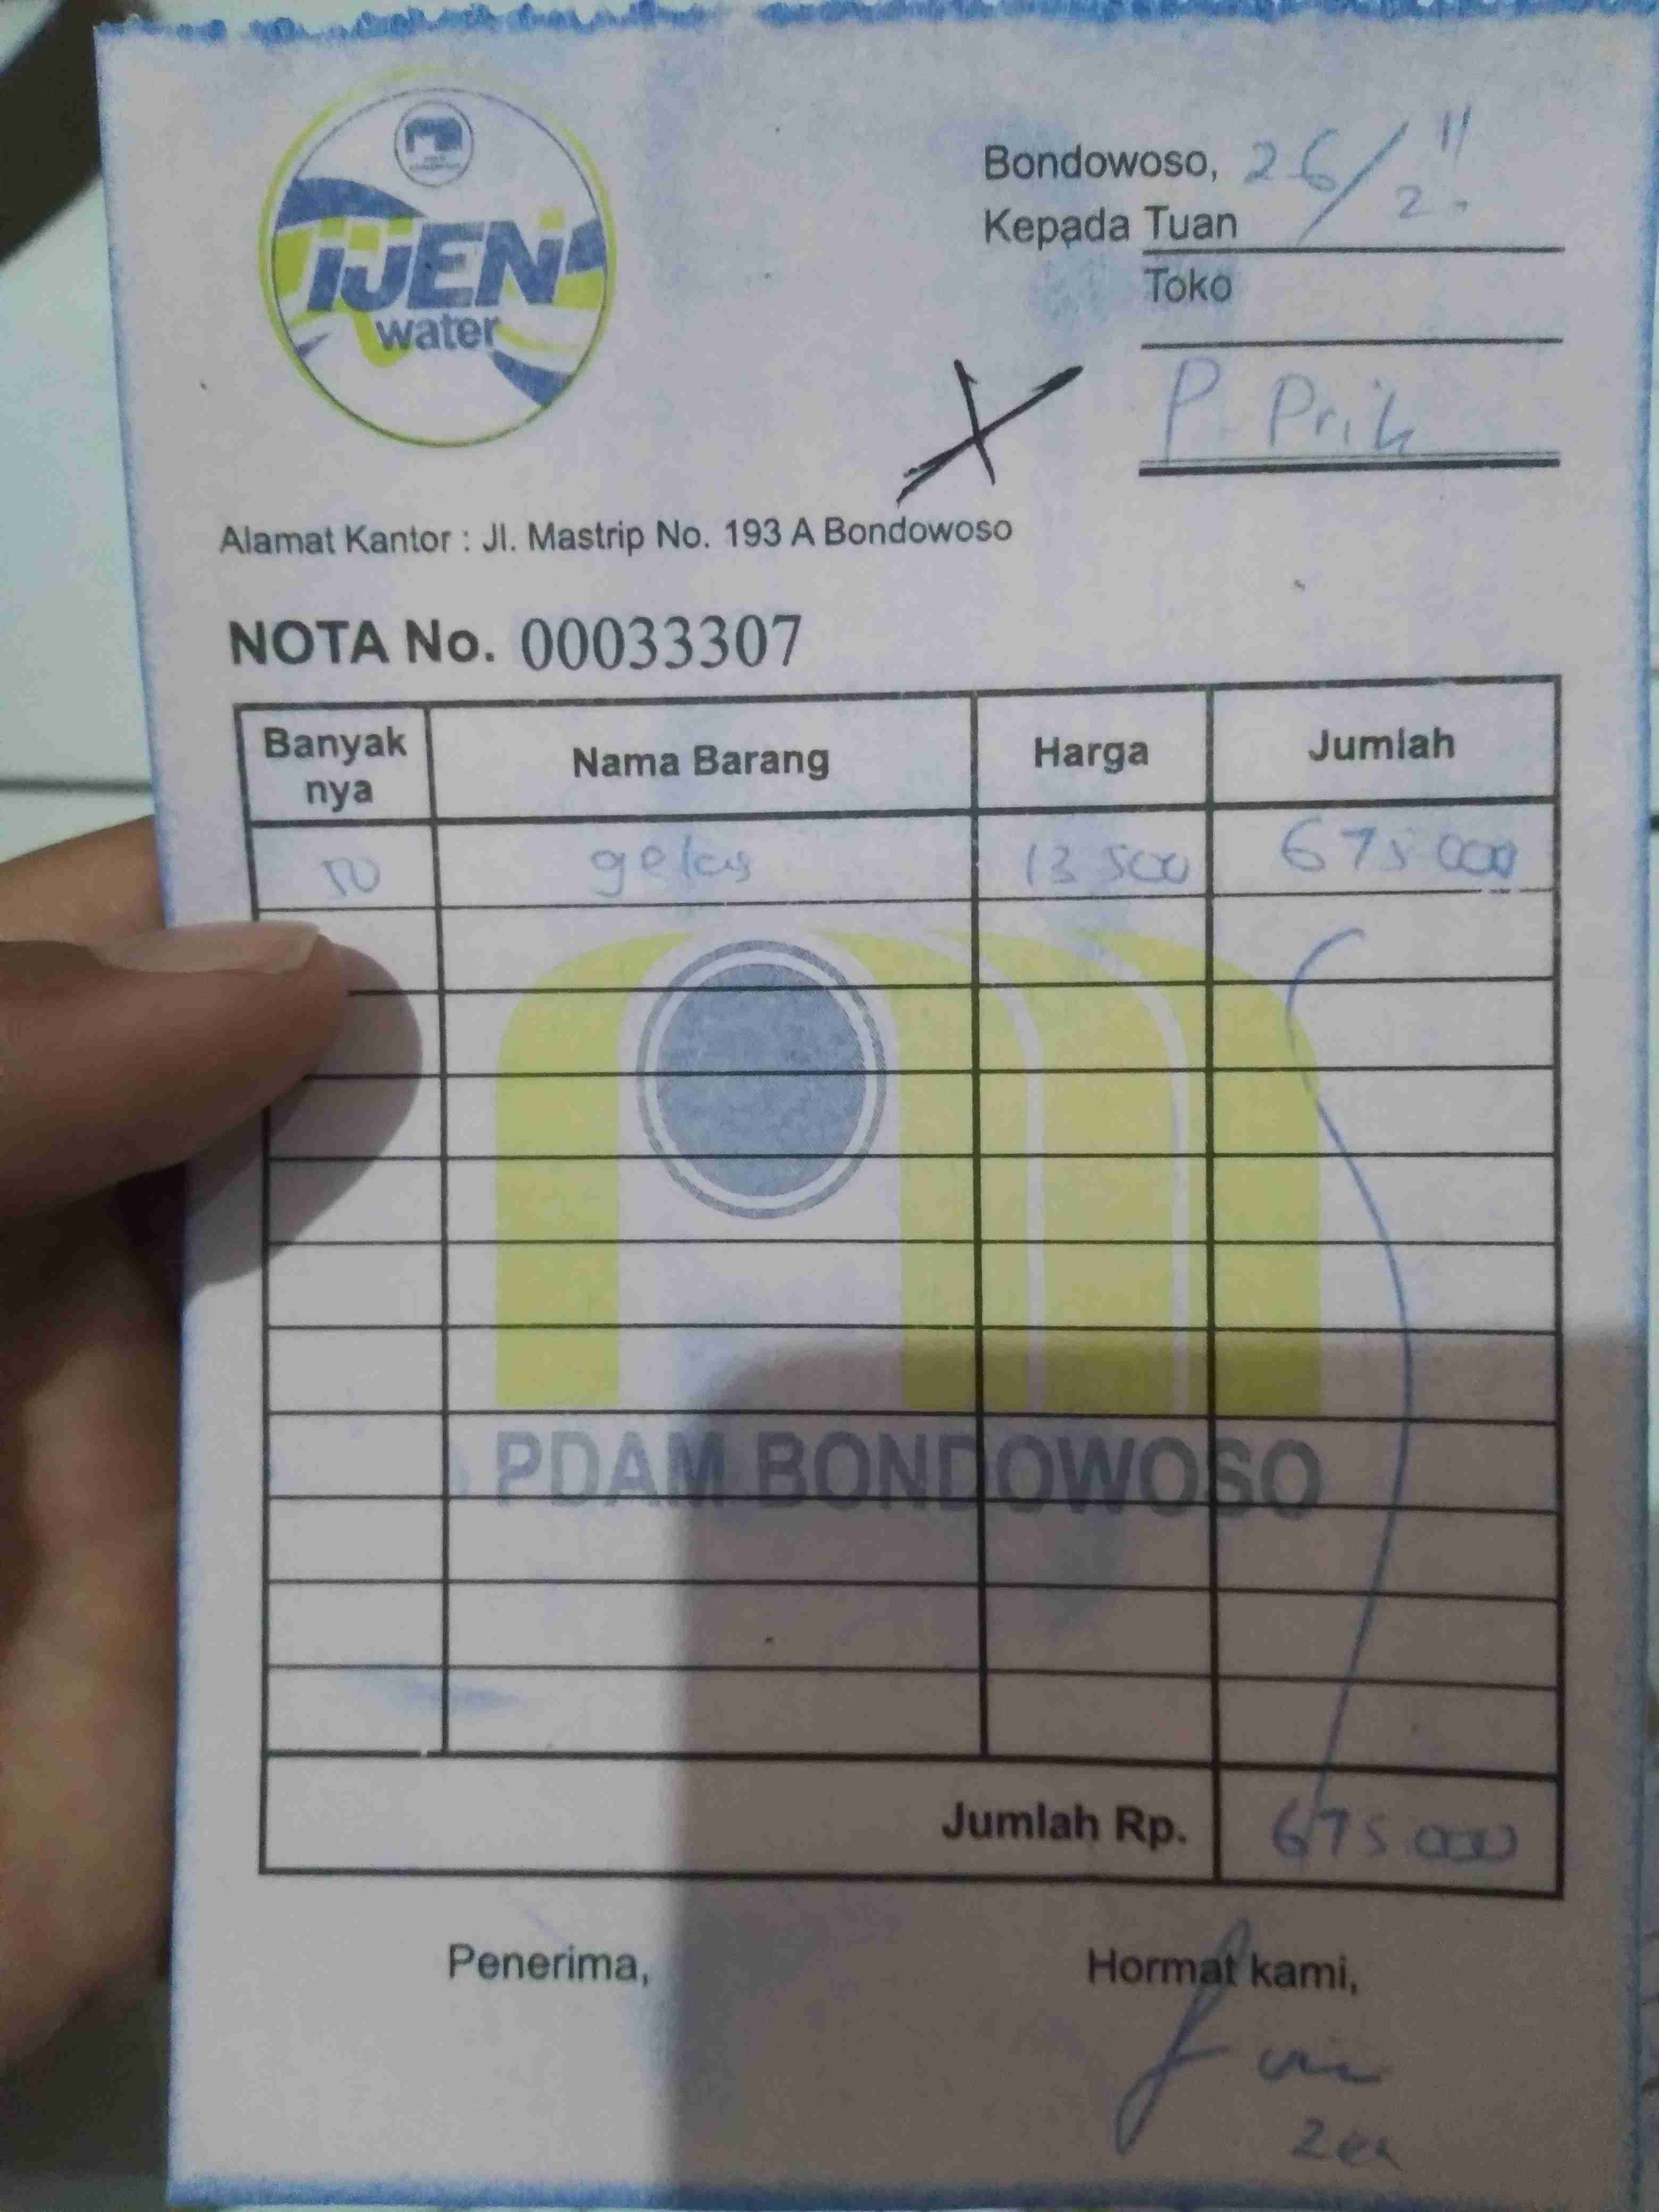 iJEN
water
Bondowoso, 26/
Kepada Tuan
Toko
P. Prih
Alamat Kantor : Jl. Mastrip No. 193 A Bondowoso
NOTA No. 00033307
Banyak nya Nama Barang Harga Jumlah
50 gelas 13 500 675 000
PDAM BONDOWOSO
Jumlah Rp. 675 000
Penerima, Hormat kami,